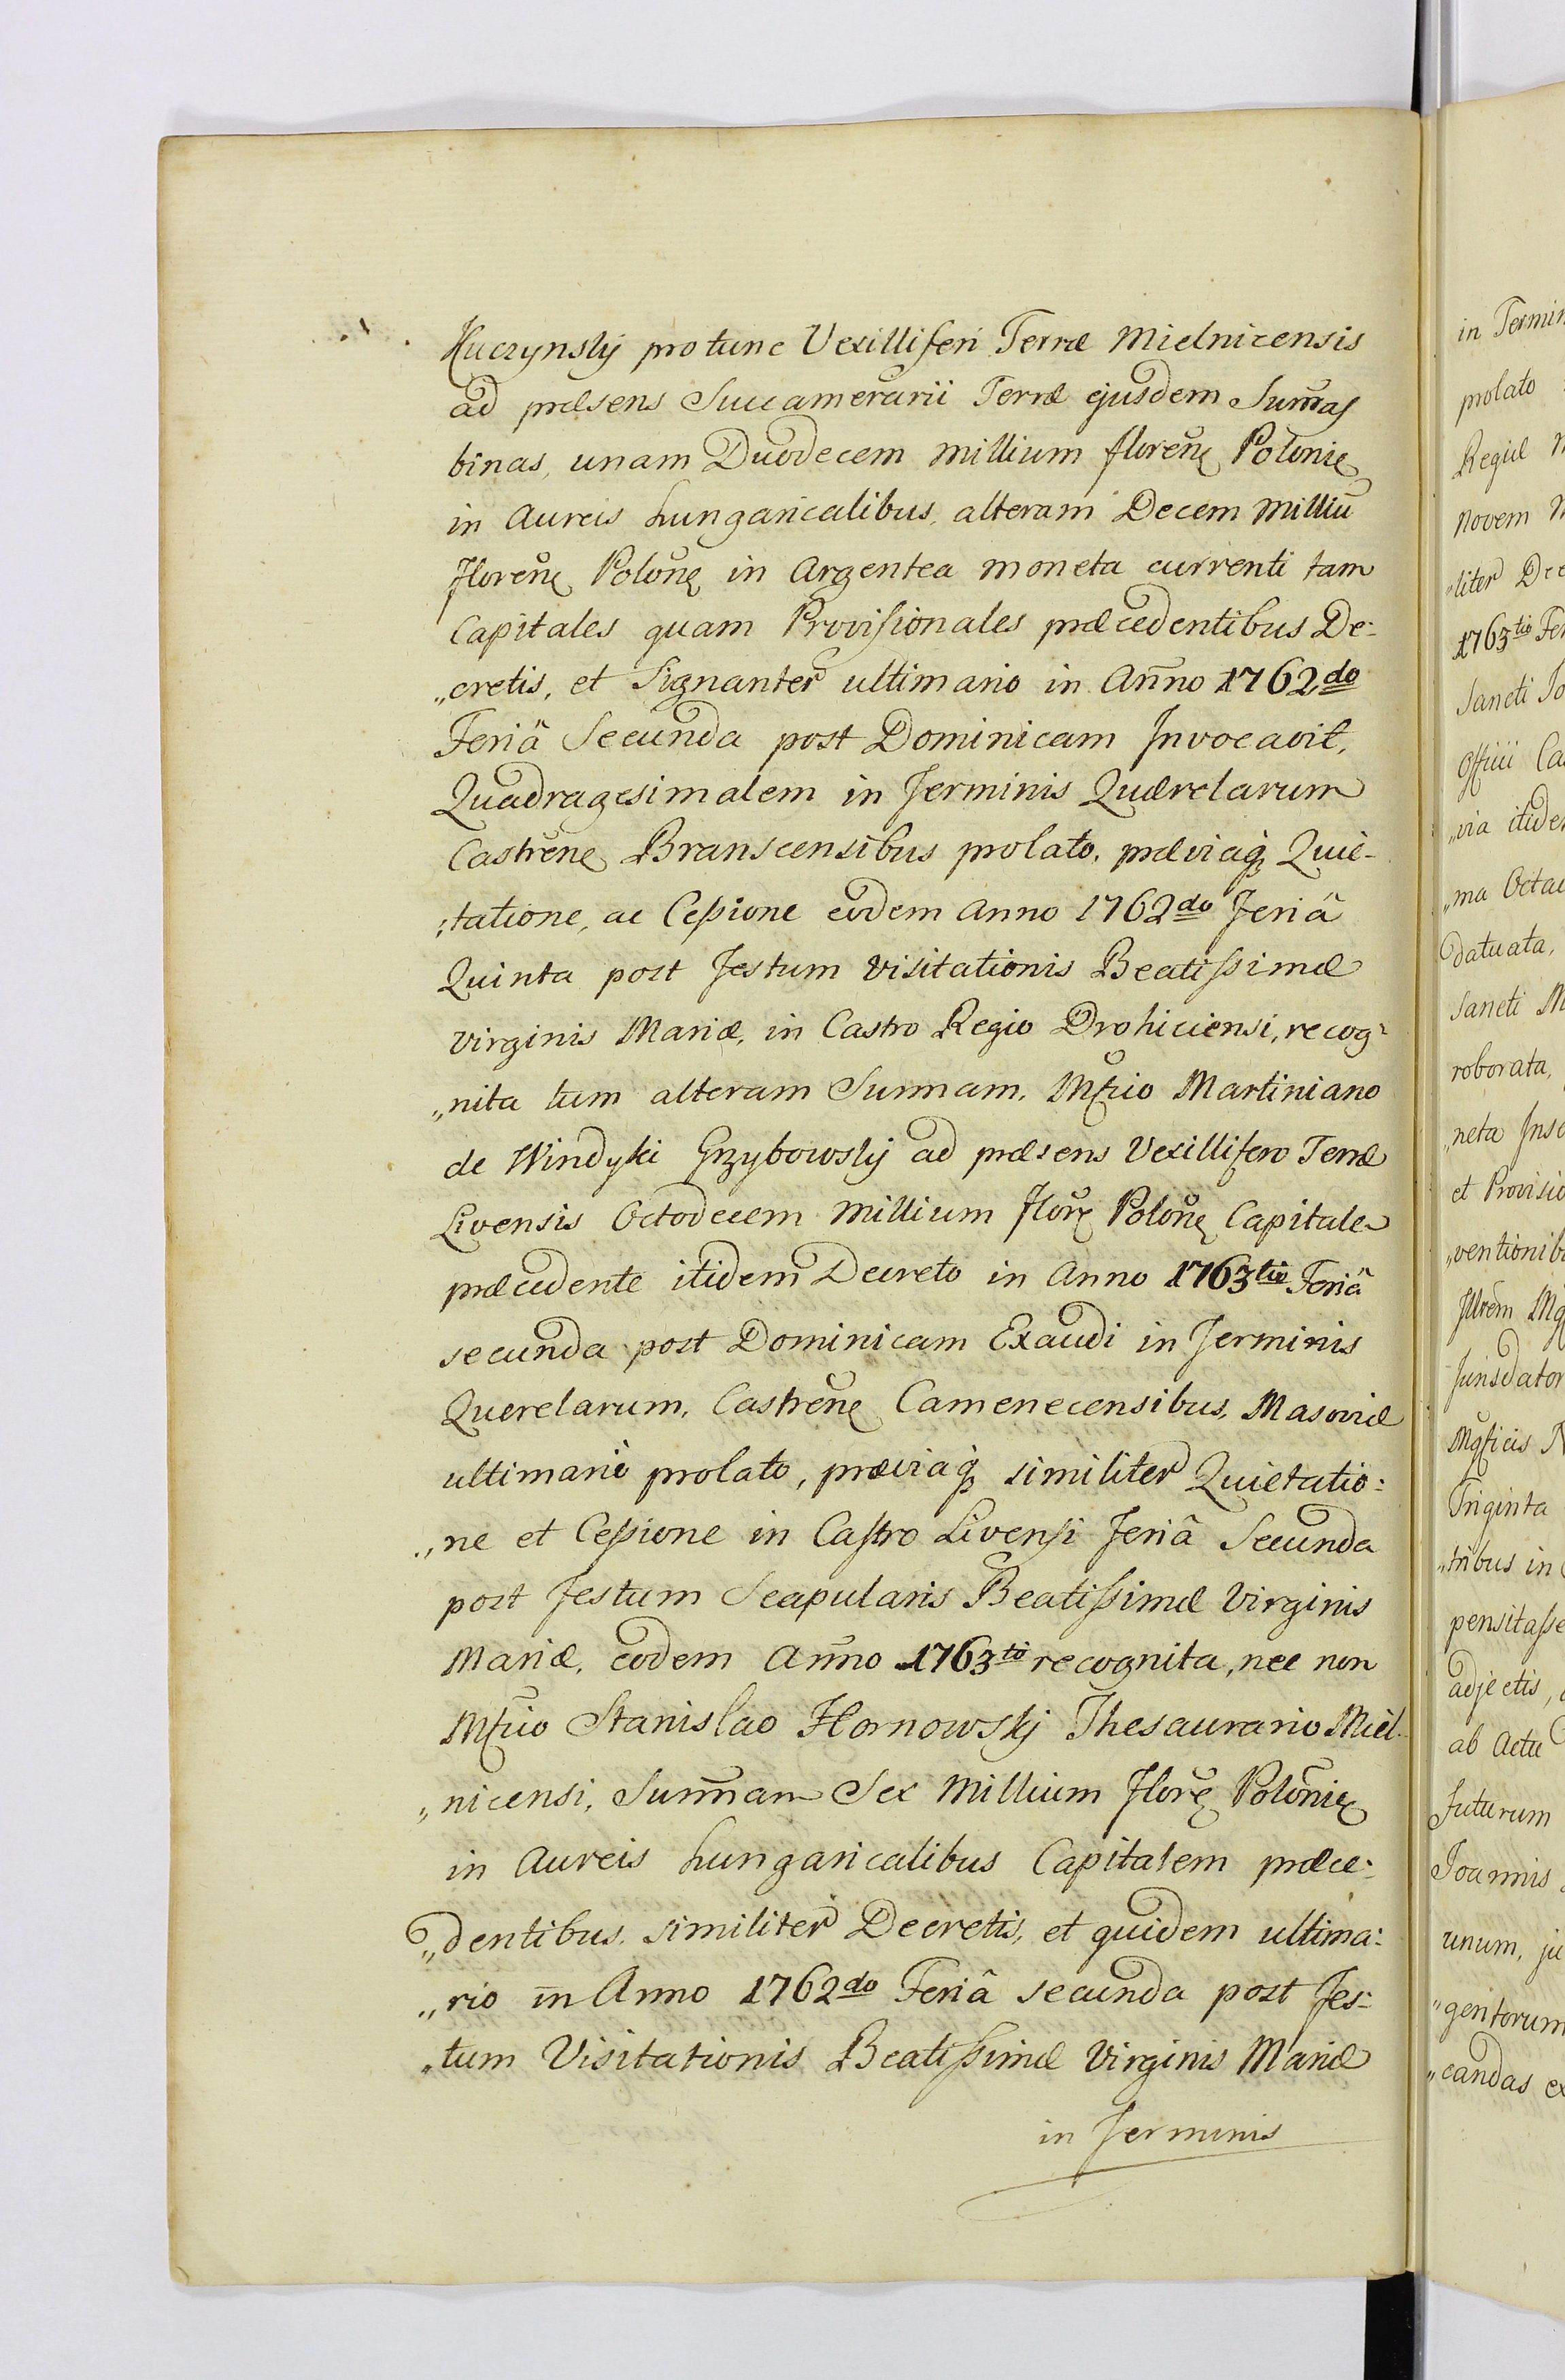 Kuczynskij pro tunc Vexilliferi Terræ Mielnicensis
ad præsens Succamerarii Terræ ejusdem Sum̃as
binas, unam Duodecem millium floreñ Polonie
in Aureis hungaricalibus, alteram Decem milliũ
floreñ Poloñ in Argentea moneta currenti tam
Capitales quam Provisionales præcedentibus De:
„cretis, et Signanter ultimario in Añno 1762do
Feriâ Secunda post Dominicam Invocavit,
Quadragesimalem in Terminis Quærelarum
Castreñ Branscensibus prolato, præviaq́ Quie-
:tatione, ac Cessione eodem Anno 1762do Feriâ
Quinta post Festum Visitationis Beatissimæ
Virginis Mariæ, in Castro Regio Drohiciensi, recog-
„nita tum alteram Summam, Mfico Martiniano
de Windyki Grzybowskij ad præsens Vexillifero Terræ
Livensis Octodecem millium flor Poloñ Capitale
præcedente itidem Decreto in Anno 1763tio Feriâ
secunda post Dominicam Exaudi in Terminis
Querelarum, Castreñ Camenecensibus, Masoviæ
ultimariè prolato, præviaq́ similiter Quietatio:
„ne et Cessione in Castro Livensi Feriâ Secunda
post Festum Scapularis Beatissimæ Virginis
Mariæ, eodem Añno 1763tio recognita, nec non
Mfico Stanislao Hornowskij Thesaurario Miel-
„nicensi, Sum̃am Sex Millium flor Polonie
in Aureis hungaricalibus Capitalem præce:
„dentibus, similiter Decretis, et quidem ultima:
„rio in Anno 1762do Feriâ secunda post Fes:
„tum Visitationis Beatissimæ Virginis Mariæ
in Terminis
in Termin
prolato
Regiæ
novem
„liter Dec
1763tio Fe
Sancti Jo
Officii Ca
„via itide
„ma Octa
datuata,
Sancti M
roborata,
„neta Ins
et Provisio
„ventionib
Jurisdator
Triginta
„tribus in
pensitasse
adjectis,
ab Actu
futurum
Joannis
unum, ju
„gentorum
„candas ex